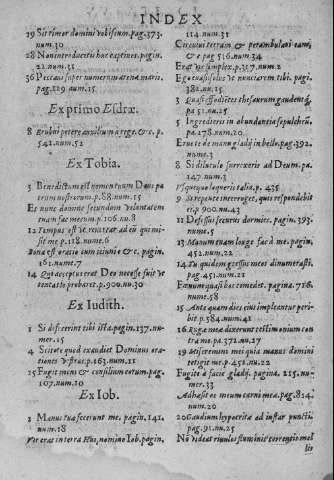 INDEX
19 Si timor domini vobiscum. pag. 373.
num. 30
28 Non introductis hac expensis. pagin.
21. num. 51
36 Peccavi super numerum arenæ maris.
pag. 129 num. 15
Ex primo Esdræ.
8 Erubui petere auxilium a rege. &c. p.
542. num. 52
Ex Tobia.
3 Benedictum est nomen tuum Deus pa
trum nostrorum p. 68. num. 15
Et nunc domine secundum voluntatem
tuam fac mecum p. 106. nu. 8
12 Tempus est vt reuertar ad eū qui mi-
sit me p. 118. nume. 6
Bona est oratio cum ieiunio &c. pagin.
161. nume. 7
14 Quia acceptus erat Deo necesse fuit vt
tentatio probaret. p. 900. nu. 30
Ex Iudith.
1 Si dixerint tibi ista. pagin. 137. nu-
mer. 15
4 Scitote quod exaudiet Dominus ora-
tiones vestras. p. 163. num. 11
15 Fugit mens & consilium eorum. pag.
107. num. 10
Ex Iob.
1 Manus tuæ fecerunt me. pagin. 141.
num. 18
Vir erat in terra Hus, nomine Iob. pagin.
114. num. 31
Circuiui terram & perambulaui eam,
& c pag 516. num. 34
Erat vir simplex. p. 317. num. 2
Ego euasi solus vt nunciarem tibi. pagi.
382. nu. 15.
3 Quasi effodiētes thesaurum gaudentq,
pa 51. nu. 25
5 Ingredieris in abundantia sepulchrū,
pa. 278. num. 20
Eruet te de manu gladij in bello. pag. 392.
num. 2
8 Si diluculo surrexeris ad Deum. pa.
147. num. 3
Vsquequo loqueris talia. p. 435
9 Si repente interroget, quis respondebit
ei, p 900. nu. 43
11 Defossus securus dormies. pagin. 393.
nume. 5
13 Manum tuam longe fac à me. pagin.
452. num. 22
14 Tu quidem gressus meos dinumerasti.
pag. 451. num. 21
Et num quasi hoc comedet. pagina. 716.
nume. 58
15 Ante quam dies eius impleantur peri-
bit p. 584. num. 41
16 Rugæ meæ dixerunt testimonium con
tra me. pa 372. nu. 27
19 Miseremini mei quia manus domini
tetigit me. p 451. nu. 22
Fugite à facie gladij. pagina. 215. nu-
mer. 33
Adhæsit os meum carni meæ. pag. 814.
num. 20
20 Gaudium hypocritæ ad instar puncti.
pag. 91. nu. 25
Nō videat riuulos fluminis torrentes mel
lis